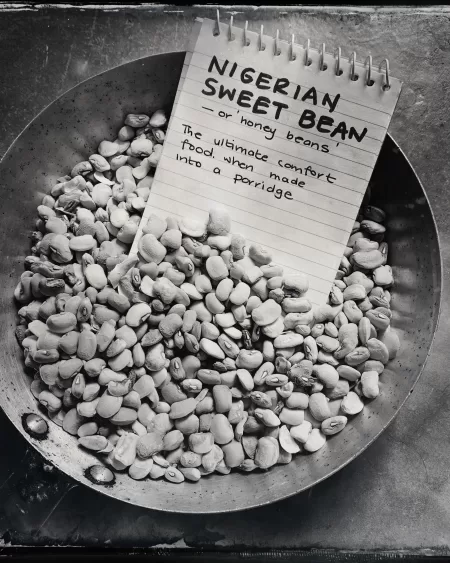 NIGERIAN
SWEET BEAN
— or 'honey beans'
The ultimate comfort
food, when made
into a porridge